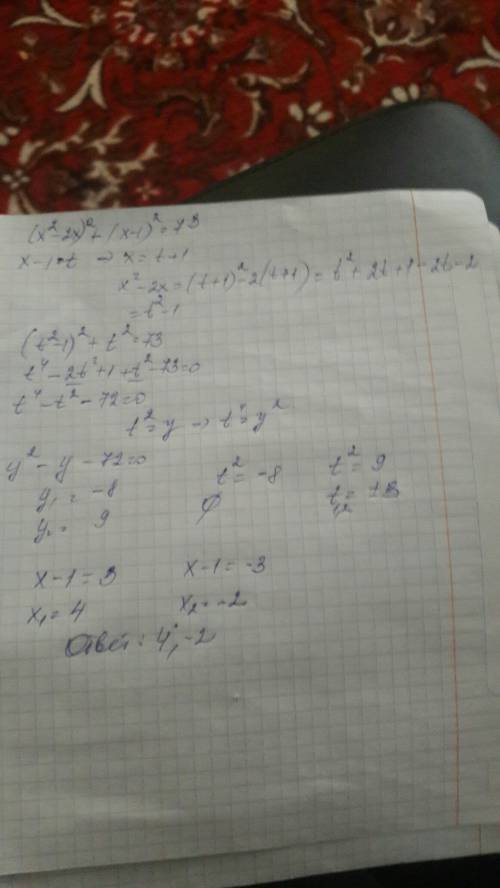 (x²-2x)² + (x-1)² = 73
x-1=t → x=t+1
x²-2x = (t+1)²-2(t+1) = t²+2t+1-2t-2
= t²-1
(t²-1)² + t² = 73
t⁴-2t²+1+t²-73=0
t⁴-t²-72=0
t²=y → t⁴=y²
y²-y-72=0
y₁ = -8
y₂ = 9
t² = -8
∅
t² = 9
t₁,₂ = ±3
x-1=3
x₁=4
x-1=-3
x₂=-2
Ответ: 4; -2